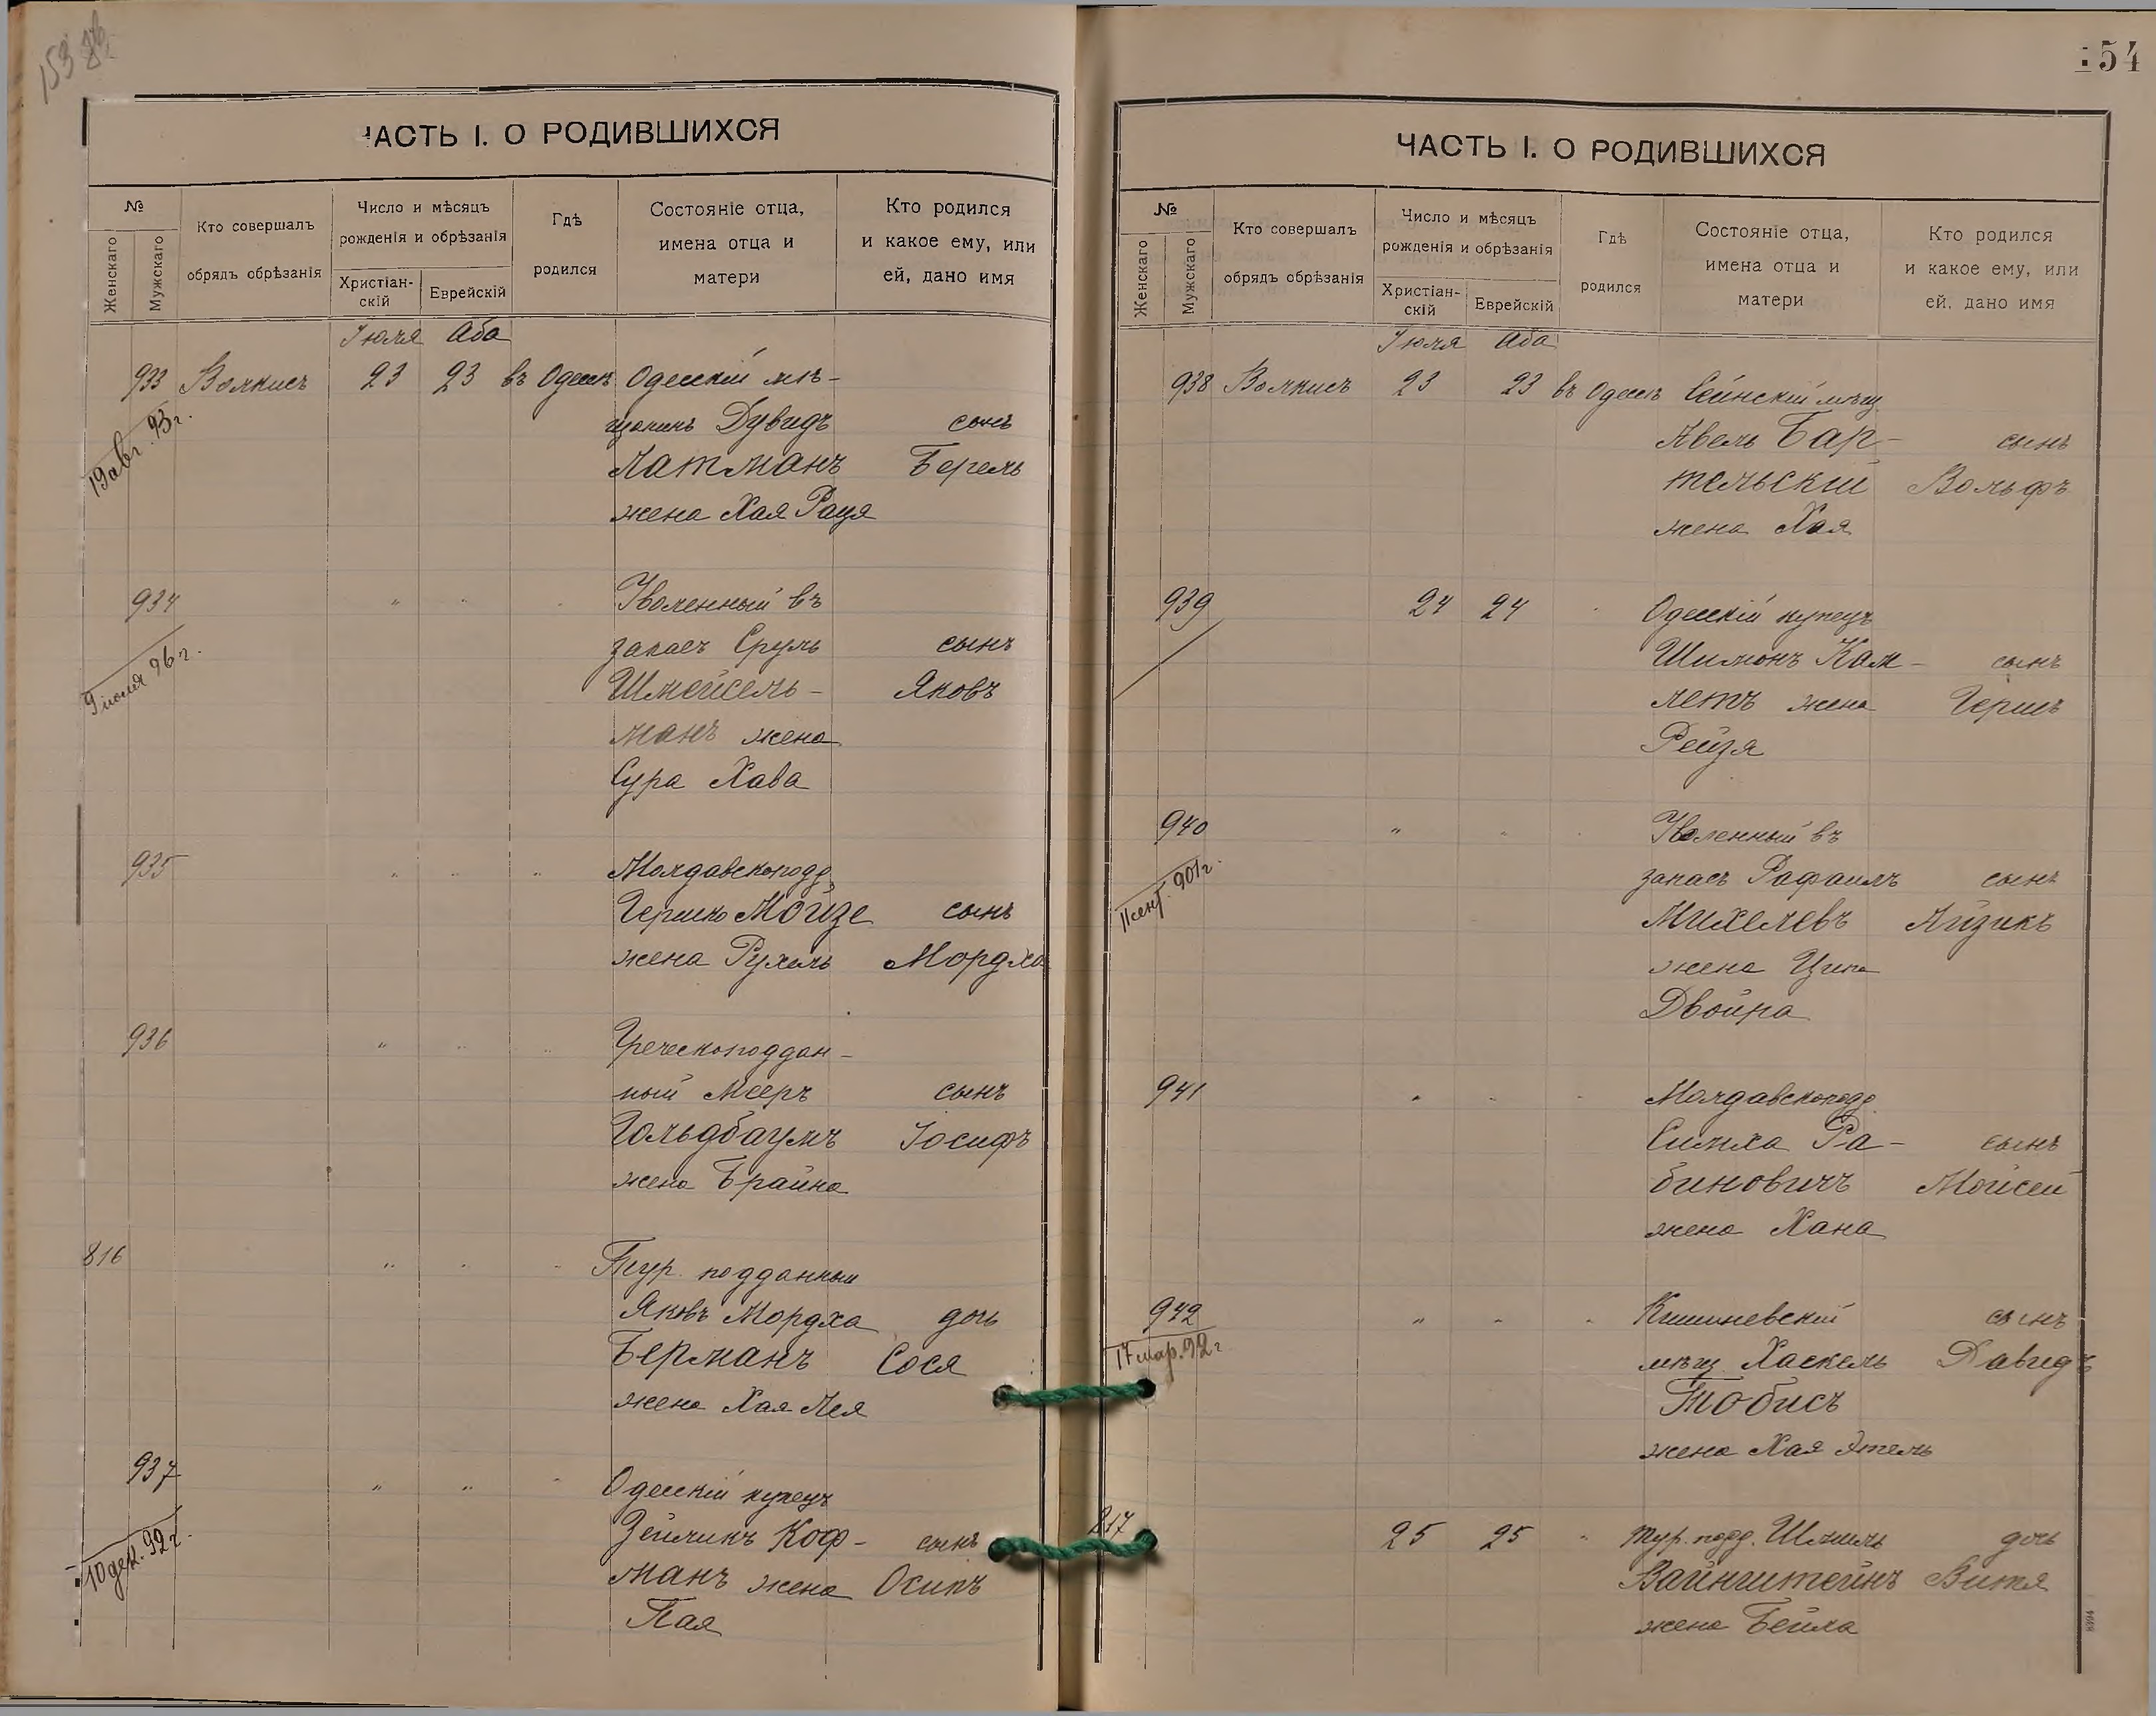 153 об.
ЧАСТЬ I. О РОДИВШИХСЯ
№
Женскаго
Мужскаго
Кто совершалъ
обрядъ обрѣзанія
Число и мѣсяцъ
рожденія и обрѣзанія
Христіан-
скій
Еврейскій
Гдѣ
родился
Состояніе отца,
имена отца и
матери
Кто родился
и какое ему, или
ей, дано имя
Іюля Аба
933 Волкисъ 23 23 въ Одессѣ Одесскій мѣ-
19 авг. 93 г.
щанинъ Дувидъ сынъ
Латманъ Берель
жена Хая Рація
934 " " " Уволенный въ
9 іюля 96 г.
запасъ Сруль сынъ
Шмейсель- Яковъ
манъ жена
Сура Хава
935 " " " Молдавскоподд.
Гершко Мойзе сынъ
жена Рухель Мордхо
936 " " " Греческоподдан-
ный Мееръ сынъ
Гольдбаумъ Іосифъ
жена Брайна
816 " " " Тур. подданный
Яковъ Мордха дочь
Берманъ Сося
жена Хая Лея
937 " " " Одесскій купецъ
10 дек. 92 г.
Зейликъ Коф- сынъ
манъ жена Осипъ
Пая
154
ЧАСТЬ I. О РОДИВШИХСЯ
№
Женскаго
Мужскаго
Кто совершалъ
обрядъ обрѣзанія
Число и мѣсяцъ
рожденія и обрѣзанія
Христіан-
скій
Еврейскій
Гдѣ
родился
Состояніе отца,
имена отца и
матери
Кто родился
и какое ему, или
ей, дано имя
Іюля Аба
938 Волкисъ 23 23 въ Одессѣ Сейнскій мѣщ.
Авель Бар- сынъ
тельскій Вольфъ
жена Хая
939 24 24 " Одесскій купецъ
Шимонъ Кам- сынъ
летъ жена Гершъ
Рейзя
940 " " " Уволенный въ
11 сент. 901 г.
запасъ Рафаилъ сынъ
Михелевъ Айзикъ
жена Ципа
Двойра
941 " " " Молдавскоподд.
Симха Ра- сынъ
биновичъ Мойсей
жена Хана
942 " " " Кишиневскій сынъ
17 мар. 92 г.
мѣщ. Хаскель Давидъ
Тобисъ
жена Хая Этель
817 25 25 " Тур. подд. Шмиль дочь
Вайнштейнъ Витя
жена Бейла